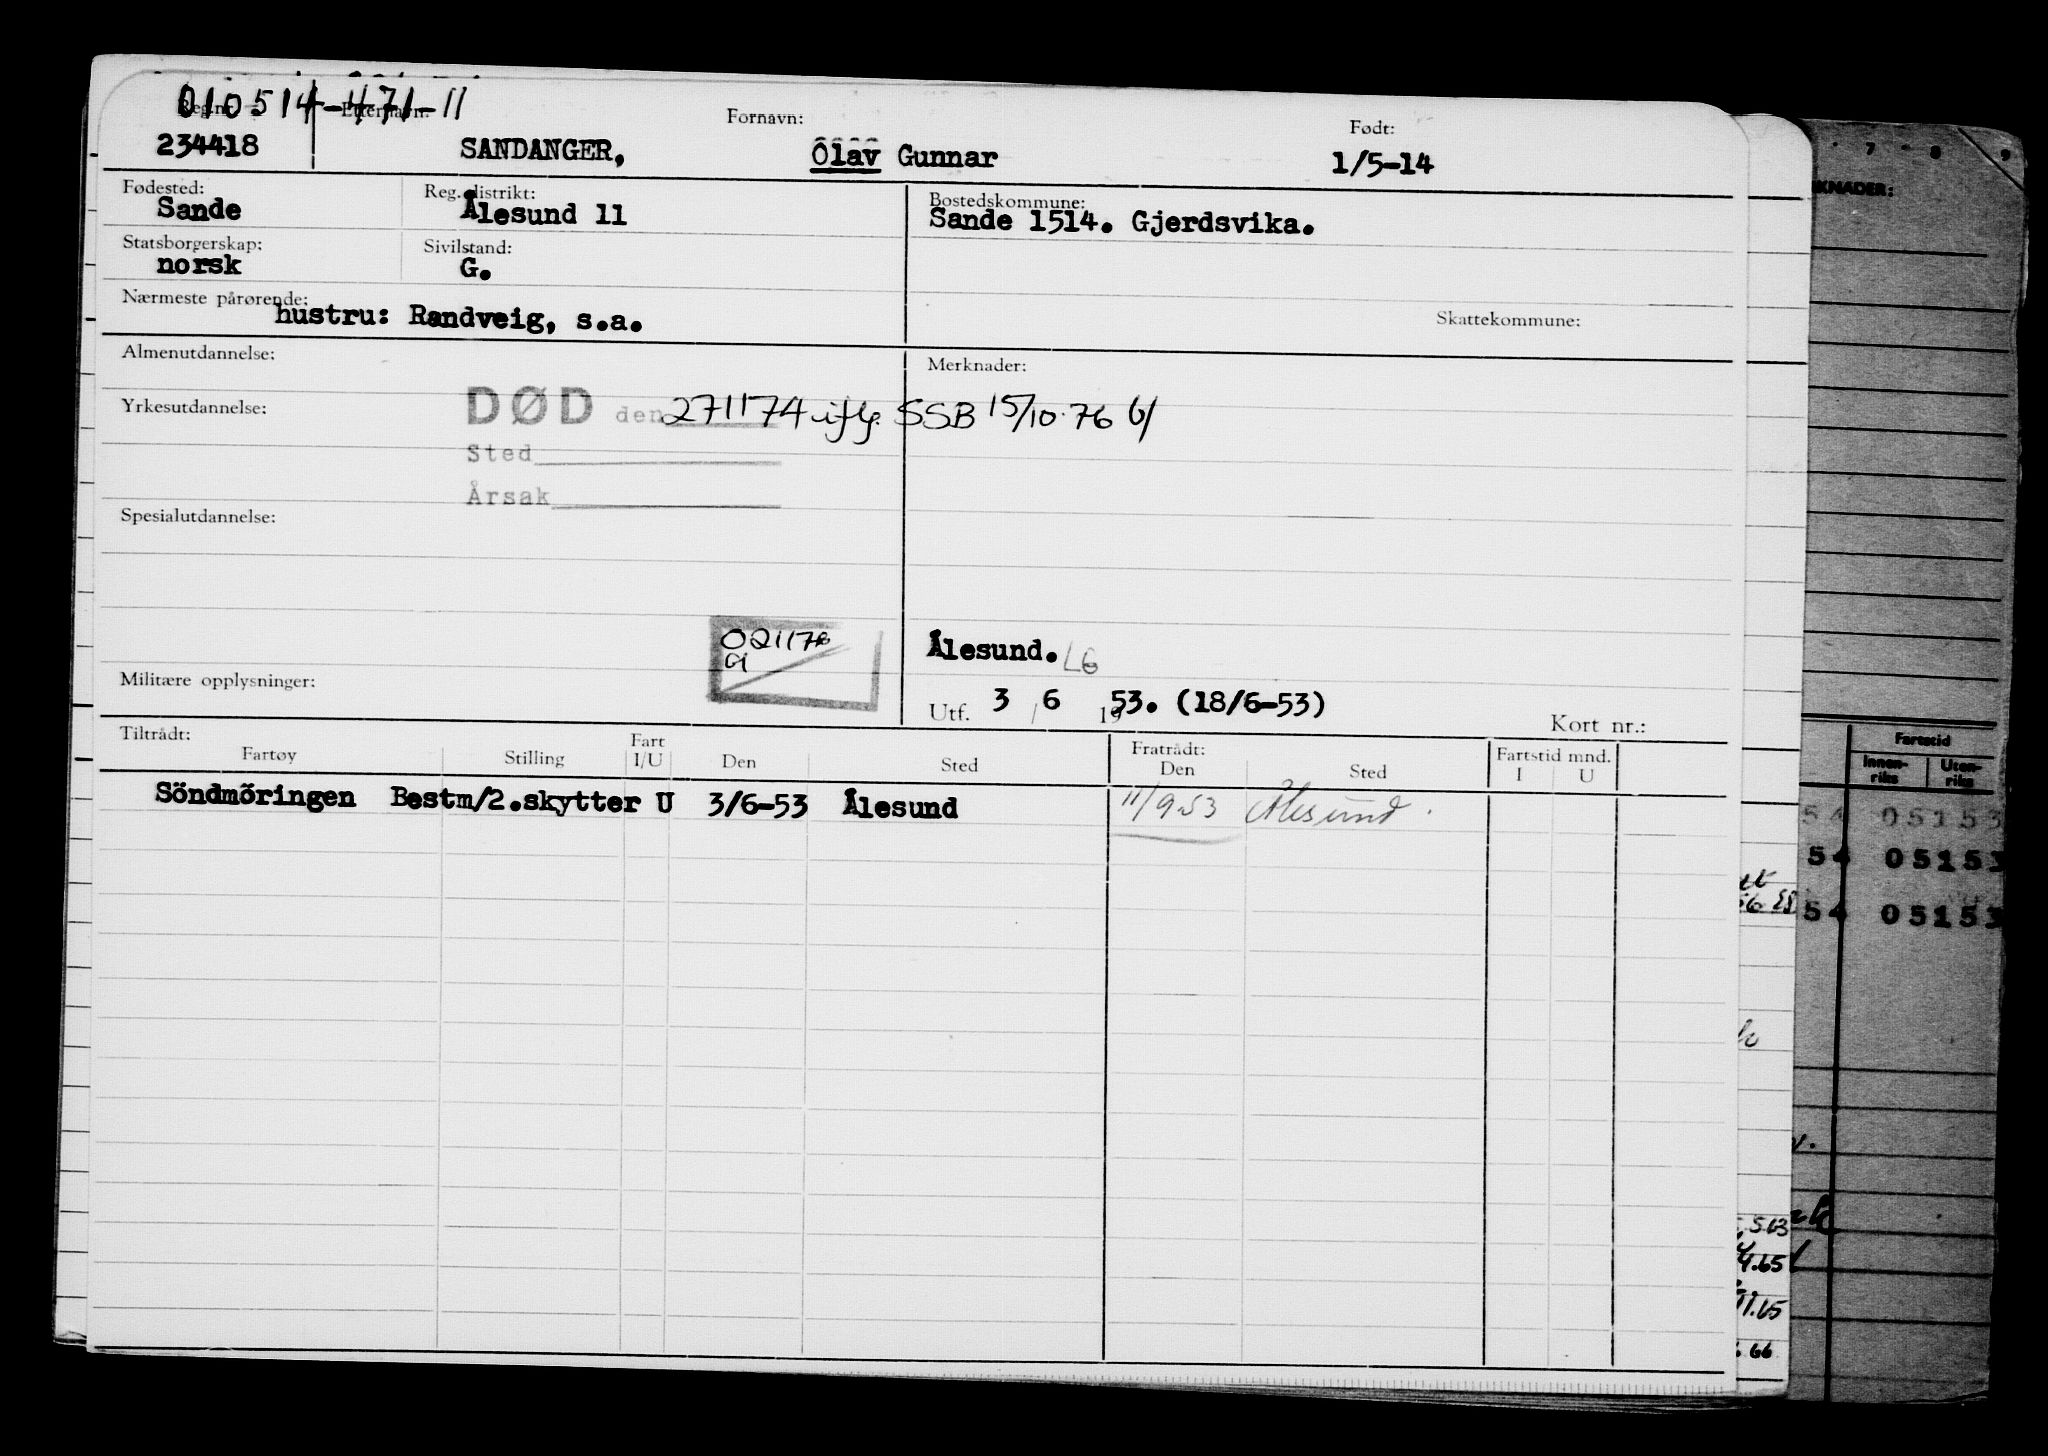 010514-471-11
Reg.nr. Etternavn: Fornavn: Født:
234418 SANDANGER, Olav Gunnar 1/5-14
Fødested: Reg. distrikt: Bostedskommune:
Sande Ålesund 11 Sande 1514. Gjerdsvika.
Statsborgerskap: Sivilstand:
norsk G.
Nærmeste pårørende: Skattekommune:
hustru: Randveig, s.a.
Almenutdannelse: Merknader:
Yrkesutdannelse: DØD den 271174 iflg. SSB 15/10.76
Sted
Årsak
Spesialutdannelse:
021176
Ålesund. LG
Militære opplysninger:
Utf. 3 / 6 1953. (18/6-53)
Kort nr.:
Tiltrådt: Fratrådt: Fartstid mnd.
Fartøy Stilling Fart I/U Den Sted Den Sted I U
Söndmöringen Bestm/2.skytter U 3/6-53 Ålesund 11/9-53 Ålesund.
7 8 9
KNADER:
Fartstid
Innen-riks Uten-riks
54 05153
54 05153
54 05153